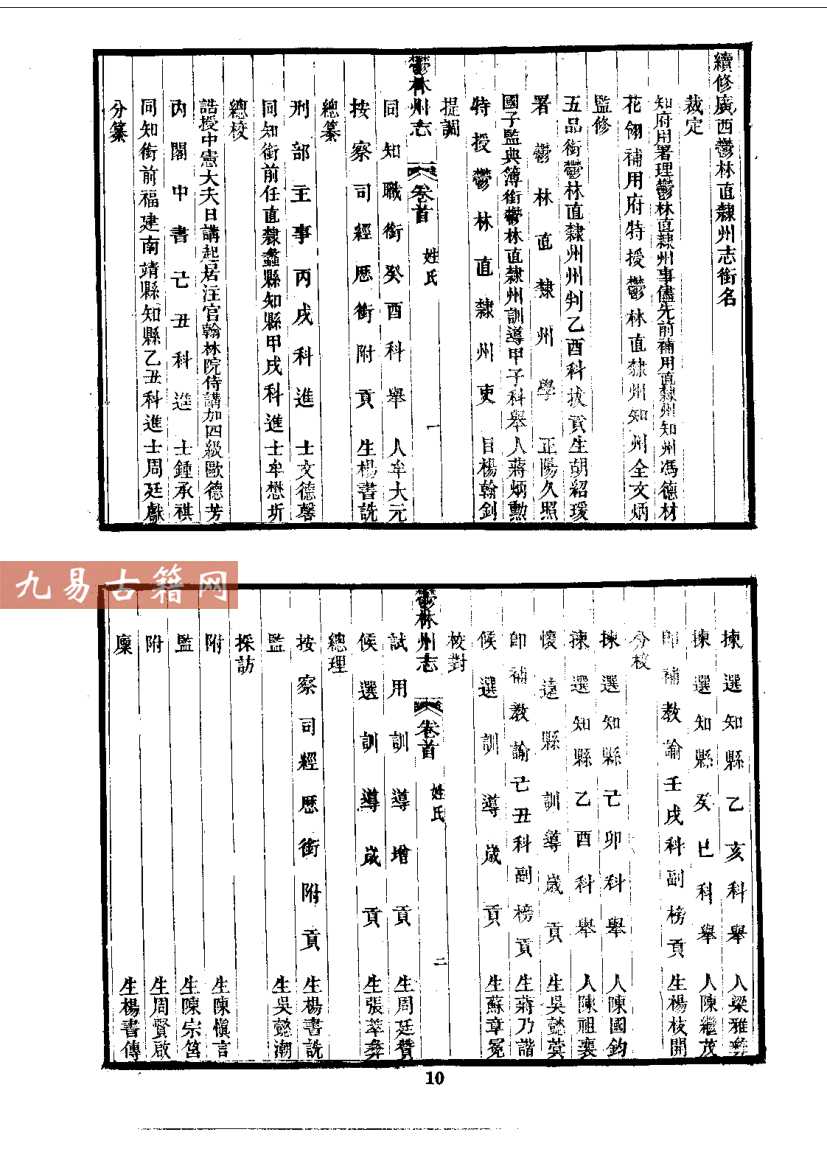 續修廣西鬱林直隸州志銜名
裁定
知府用署理鬱林直隸州事儘先前補用直隸州知州馮德材
花翎補用府特授鬱林直隸州知州全文炳
監修
五品銜鬱林直隸州州判乙酉科拔貢生胡紹瑗
署鬱林直隸州學正陽久照
國子監典簿銜鬱林直隸州訓導甲子科舉人蔣炳勳
特授鬱林直隸州吏目楊翰釗
提調
鬱林州志 卷首 姓氏 一
同知職銜癸酉科舉人牟大元
按察司經歷銜附貢生楊書詵
總纂
刑部主事丙戌科進士文德馨
同知銜前任直隸蠡縣知縣甲戌科進士牟懋圻
總校
誥授中憲大夫日講起居注官翰林院侍講加四級歐德芳
內閣中書己丑科進士鍾承祺
同知銜前福建南靖縣知縣乙丑科進士周廷獻
分纂
揀選知縣乙亥科舉人梁雅彝
揀選知縣癸巳科舉人陳繼茂
即補教諭壬戌科副榜貢生楊枝開
分校
揀選知縣己卯科舉人陳國鈞
揀選知縣乙酉科舉人陳祖襄
懷遠縣訓導歲貢生吳懿蓂
即補教諭己丑科副榜貢生蔣乃諧
候選訓導歲貢生蘇章冕
校對
鬱林州志 卷首 姓氏 二
試用訓導增貢生周廷贊
候選訓導歲貢生張萃彝
總理
按察司經歷銜附貢生楊書詵
監生吳懿潮
採訪
附生陳愼言
監生陳宗筥
附生周賢啟
廩生楊書傳
九易古籍网
10